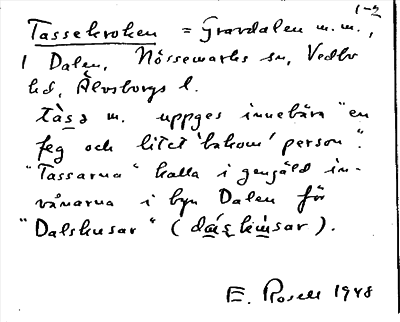 1-2
Tassekroken = Gravdalen m.m.,
i Dalen, Nössemarks sn, Vedbo
hd, Älvsborgs l.
tàsə m. uppges innebära "en
feg och litet 'bakom' person".
"Tassarna" kalla i gengäld in-
vånarna i byn Dalen för
"Dalskusar" (dáɭskùsar).
E. Rosell 1948